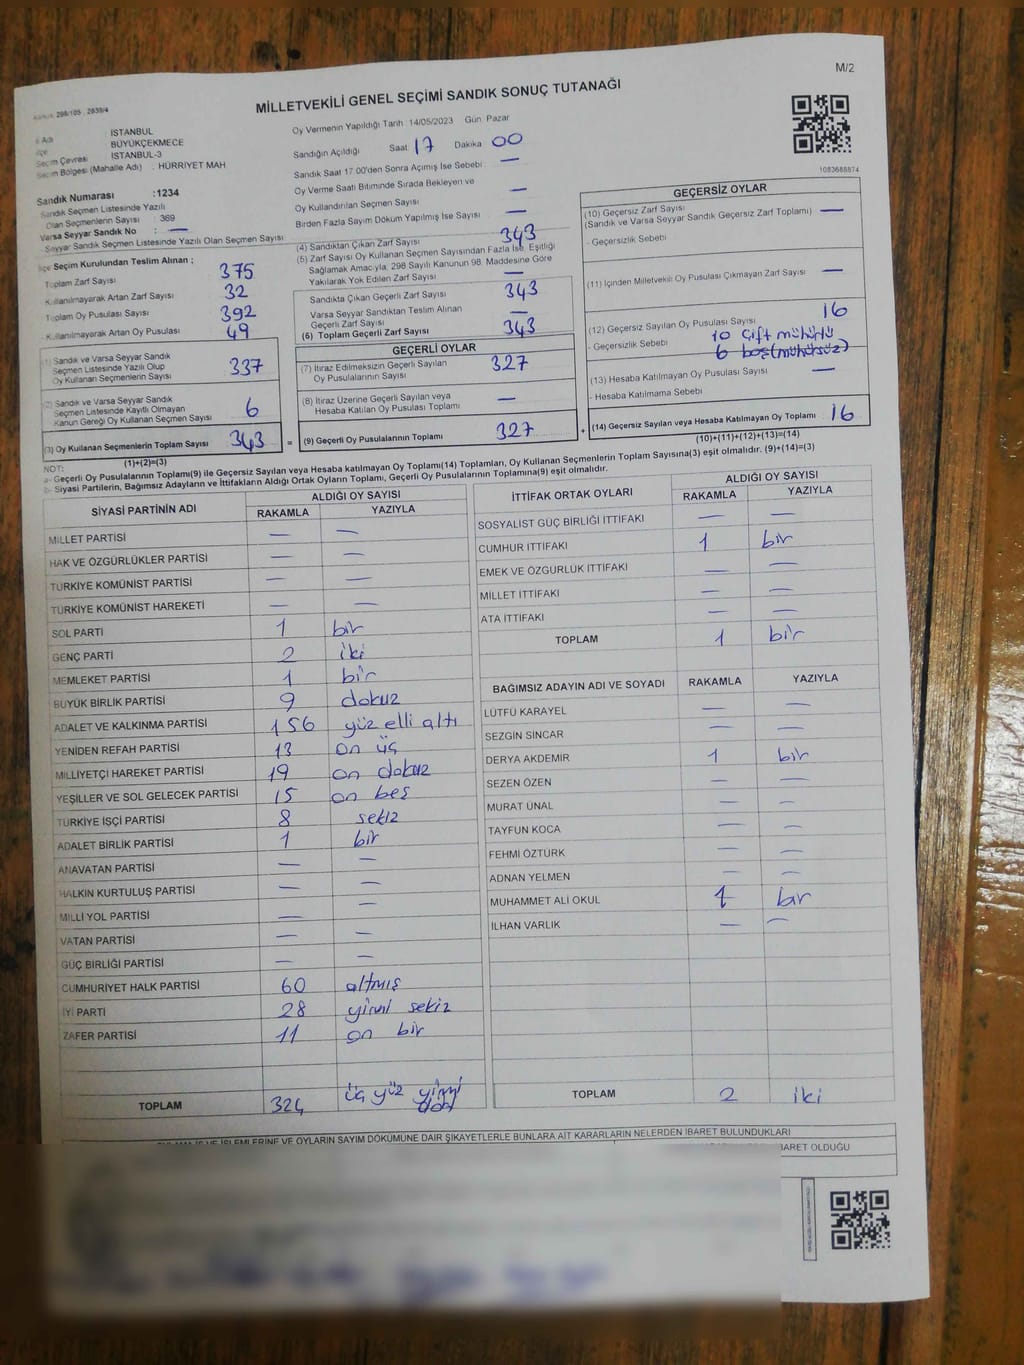 M/2
MİLLETVEKİLİ GENEL SEÇİMİ SANDIK SONUÇ TUTANAĞI
İSTANBUL
BÜYÜKÇEKMECE
Seçim Çevresi İSTANBUL-3
Seçim Bölgesi (Mahalle Adı) : HÜRRİYET MAH
Oy Vermenin Yapıldığı Tarih 14/05/2023 Gün Pazar
Sandığın Açıldığı Saat 17 Dakika 00
Sandık Saat 17 00'den Sonra Açımış İse Sebebi —
Oy Verme Saati Bitiminde Sırada Bekleyen ve
Oy Kullandırılan Seçmen Sayısı —
Birden Fazla Sayım Döküm Yapılmış İse Sayısı —
1083688874
Sandık Numarası :1234
Sandık Seçmen Listesinde Yazılı
Olan Seçmenlerin Sayısı : 369
Varsa Seyyar Sandık No : —
Seyyar Sandık Seçmen Listesinde Yazılı Olan Seçmen Sayısı
İlçe Seçim Kurulundan Teslim Alınan ;
Toplam Zarf Sayısı 375
Kullanılmayarak Artan Zarf Sayısı 32
Toplam Oy Pusulası Sayısı 392
Kullanılmayarak Artan Oy Pusulası 49
(1) Sandık ve Varsa Seyyar Sandık
Seçmen Listesinde Yazılı Olup
Oy Kullanan Seçmenlerin Sayısı 337
(2) Sandık ve Varsa Seyyar Sandık
Seçmen Listesinde Kayıtlı Olmayan
Kanun Gereği Oy Kullanan Seçmen Sayısı 6
(3) Oy Kullanan Seçmenlerin Toplam Sayısı 343
(1)+(2)=(3)
(4) Sandıktan Çıkan Zarf Sayısı 343
(5) Zarf Sayısı Oy Kullanan Seçmen Sayısından Fazla İse, Eşitliği
Sağlamak Amacıyla, 298 Sayılı Kanunun 98. Maddesine Göre
Yakılarak Yok Edilen Zarf Sayısı —
Sandıkta Çıkan Geçerli Zarf Sayısı 343
Varsa Seyyar Sandıktan Teslim Alınan
Geçerli Zarf Sayısı —
(6) Toplam Geçerli Zarf Sayısı 343
GEÇERLİ OYLAR
(7) İtiraz Edilmeksizin Geçerli Sayılan
Oy Pusulalarının Sayısı 327
(8) İtiraz Üzerine Geçerli Sayılan veya
Hesaba Katılan Oy Pusulası Toplamı —
= (9) Geçerli Oy Pusulalarının Toplamı 327
GEÇERSİZ OYLAR
(10) Geçersiz Zarf Sayısı —
(Sandık ve Varsa Seyyar Sandık Geçersiz Zarf Toplamı)
- Geçersizlik Sebebi
(11) İçinden Milletvekili Oy Pusulası Çıkmayan Zarf Sayısı —
(12) Geçersiz Sayılan Oy Pusulası Sayısı 16
- Geçersizlik Sebebi 10 çift mühürlü
6 boş (mühürsüz)
(13) Hesaba Katılmayan Oy Pusulası Sayısı —
- Hesaba Katılmama Sebebi
+ (14) Geçersiz Sayılan veya Hesaba Katılmayan Oy Toplamı 16
(10)+(11)+(12)+(13)=(14)
NOT:
a- Geçerli Oy Pusulalarının Toplamı(9) ile Geçersiz Sayılan veya Hesaba katılmayan Oy Toplamı(14) Toplamları, Oy Kullanan Seçmenlerin Toplam Sayısına(3) eşit olmalıdır. (9)+(14)=(3)
b- Siyasi Partilerin, Bağımsız Adayların ve İttifakların Aldığı Ortak Oyların Toplamı, Geçerli Oy Pusulalarının Toplamına(9) eşit olmalıdır.
SİYASİ PARTİNİN ADI ALDIĞI OY SAYISI
RAKAMLA YAZIYLA
MİLLET PARTİSİ — —
HAK VE ÖZGÜRLÜKLER PARTİSİ — —
TÜRKİYE KOMÜNİST PARTİSİ — —
TÜRKİYE KOMÜNİST HAREKETİ — —
SOL PARTİ 1 bir
GENÇ PARTİ 2 iki
MEMLEKET PARTİSİ 1 bir
BÜYÜK BİRLİK PARTİSİ 9 dokuz
ADALET VE KALKINMA PARTİSİ 156 yüz elli altı
YENİDEN REFAH PARTİSİ 13 on üç
MİLLİYETÇİ HAREKET PARTİSİ 19 on dokuz
YEŞİLLER VE SOL GELECEK PARTİSİ 15 on beş
TÜRKİYE İŞÇİ PARTİSİ 8 sekiz
ADALET BİRLİK PARTİSİ 1 bir
ANAVATAN PARTİSİ — —
HALKIN KURTULUŞ PARTİSİ — —
MİLLİ YOL PARTİSİ — —
VATAN PARTİSİ — —
GÜÇ BİRLİĞİ PARTİSİ — —
CUMHURİYET HALK PARTİSİ 60 altmış
İYİ PARTİ 28 yirmi sekiz
ZAFER PARTİSİ 11 on bir
TOPLAM 324 üç yüz yirmi
dört
İTTİFAK ORTAK OYLARI ALDIĞI OY SAYISI
RAKAMLA YAZIYLA
SOSYALİST GÜÇ BİRLİĞİ İTTİFAKI — —
CUMHUR İTTİFAKI 1 bir
EMEK VE ÖZGÜRLÜK İTTİFAKI — —
MİLLET İTTİFAKI — —
ATA İTTİFAKI — —
TOPLAM 1 bir
BAĞIMSIZ ADAYIN ADI VE SOYADI RAKAMLA YAZIYLA
LÜTFÜ KARAYEL — —
SEZGİN SİNCAR — —
DERYA AKDEMİR 1 bir
SEZEN ÖZEN — —
MURAT ÜNAL — —
TAYFUN KOCA — —
FEHMİ ÖZTÜRK — —
ADNAN YELMEN — —
MUHAMMET ALİ OKUL 1 bir
İLHAN VARLIK — —
TOPLAM 2 iki
İŞLEMLERİNE VE OYLARIN SAYIM DÖKÜMÜNE DAİR ŞİKAYETLERLE BUNLARA AİT KARARLARIN NELERDEN İBARET BULUNDUKLARI
İBARET OLDUĞU